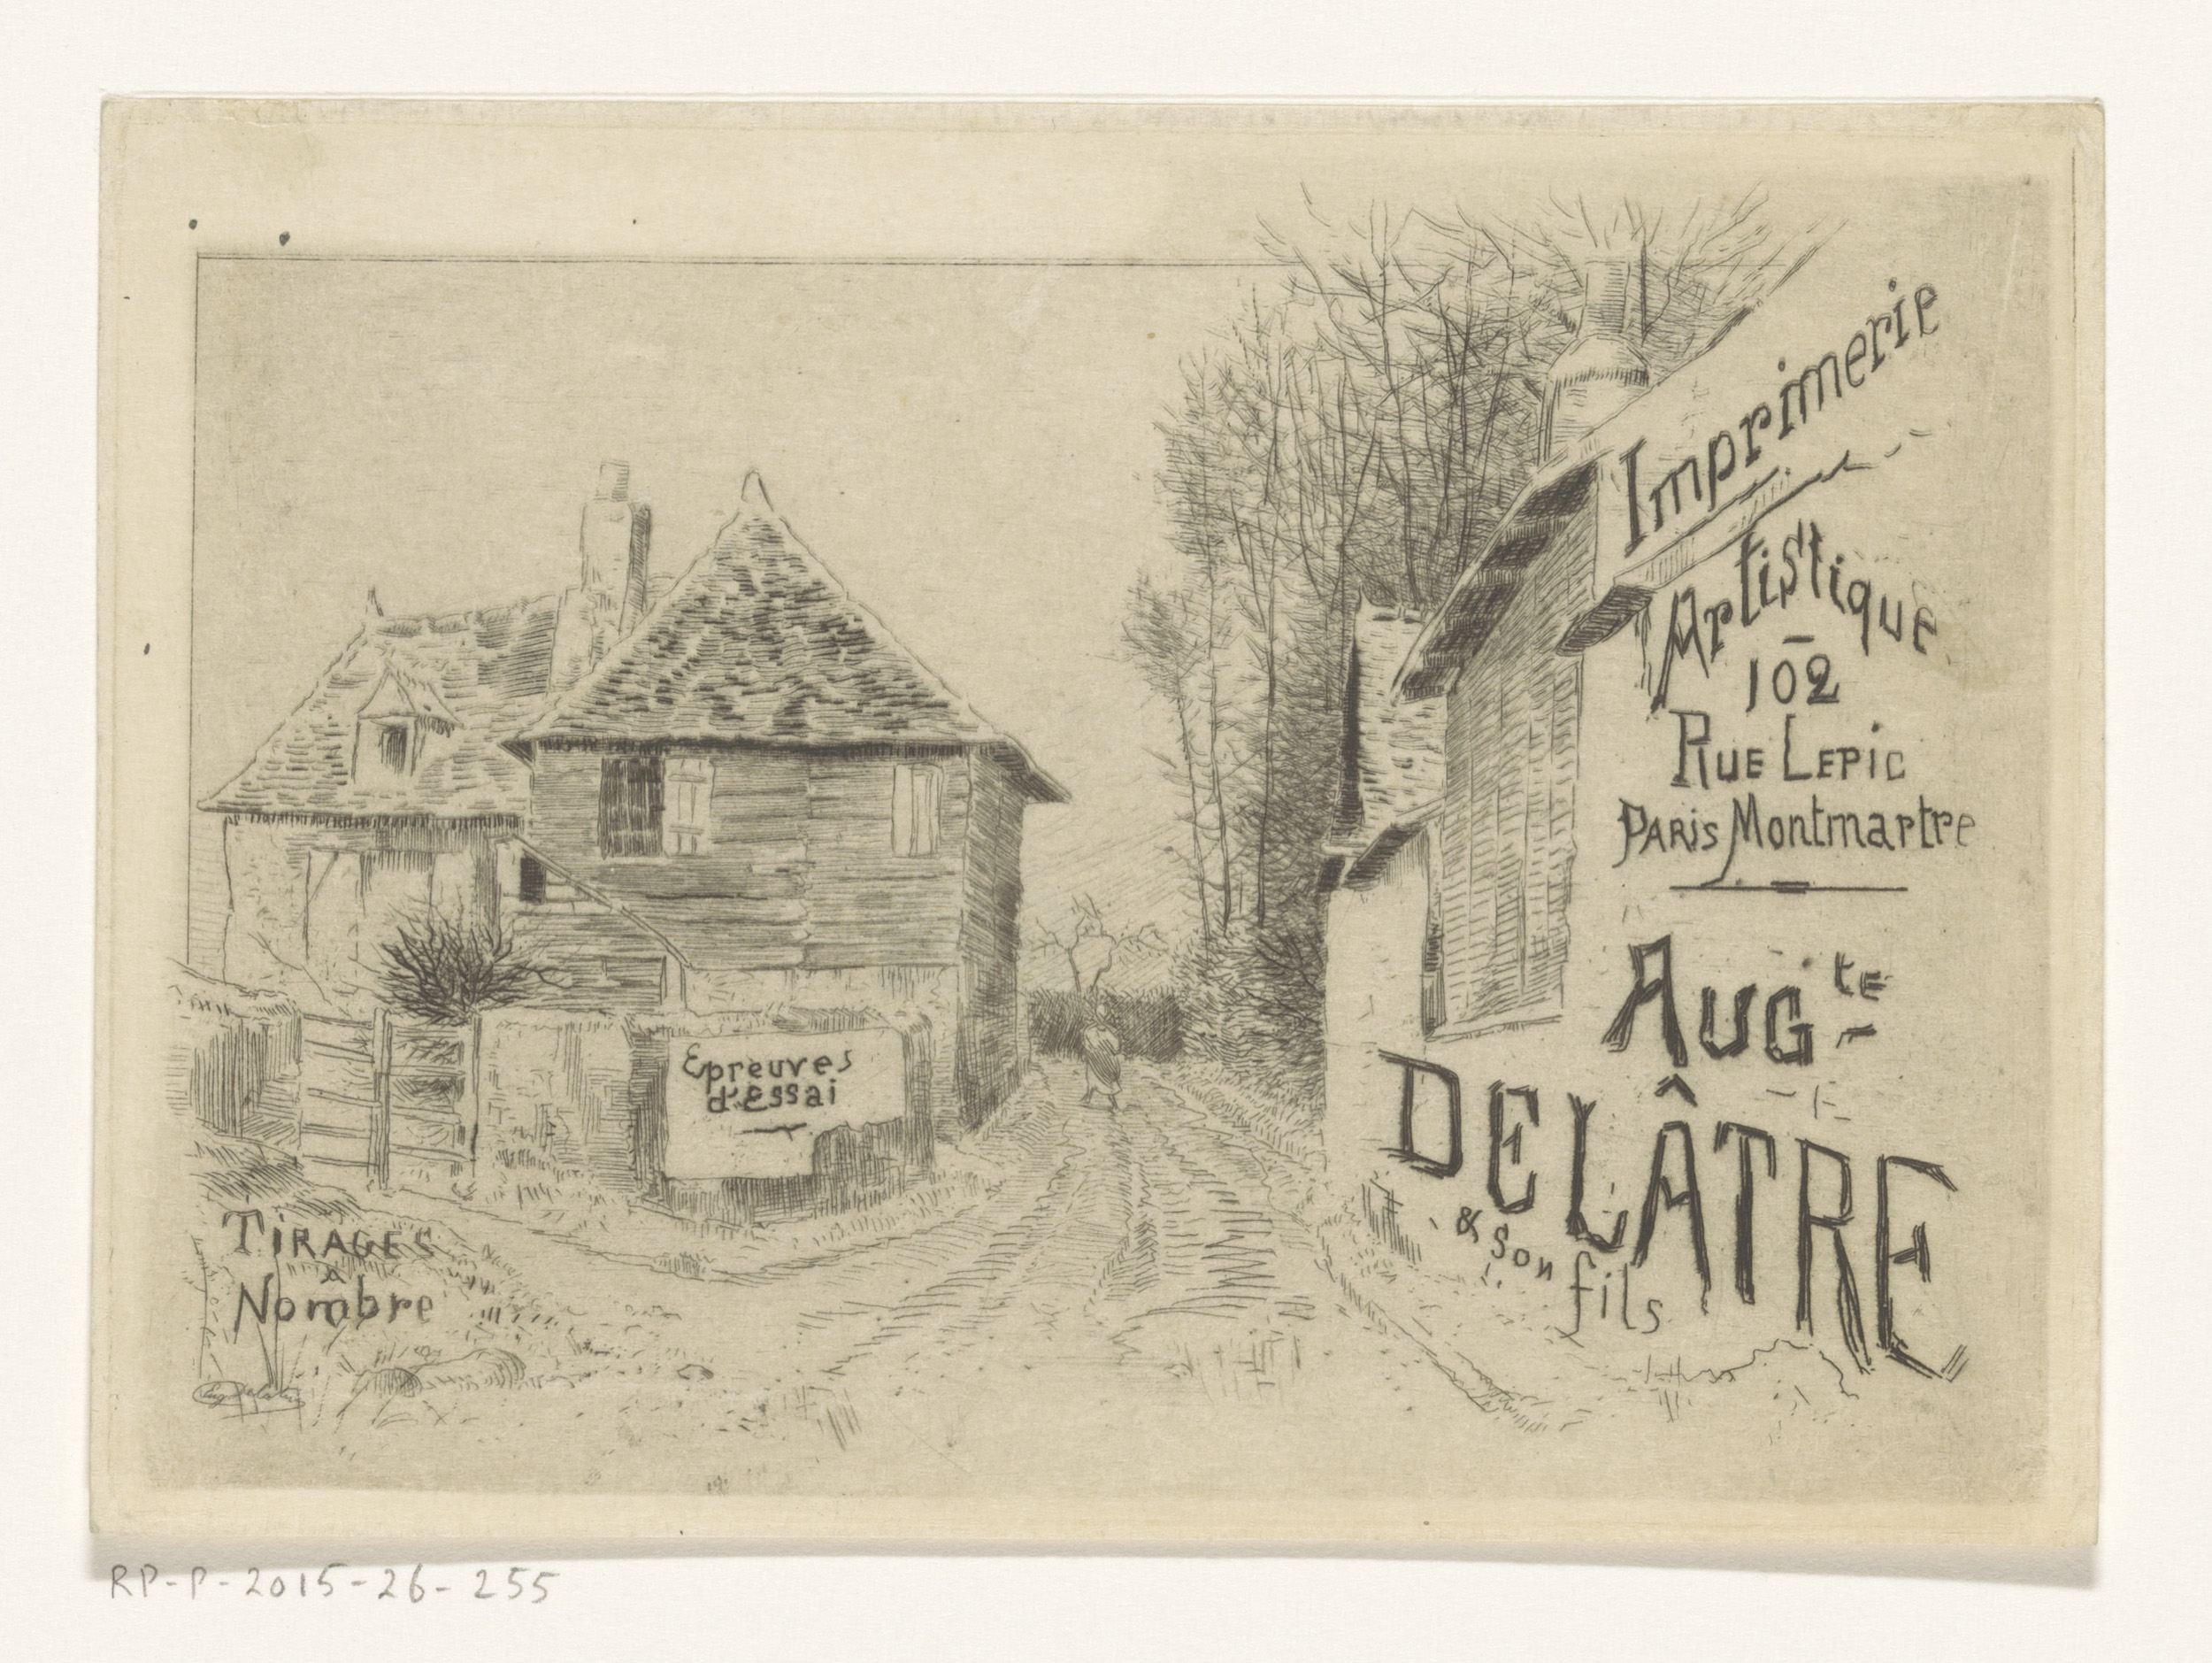 Imprimerie
Artistique
102
RUE LEPIC
PARIS Montmartre
AUGte
DELÂTRE
& son
fils
Epreuves
d'essai
TIRAGES
à
Nombre
RP-P-2015-26-255